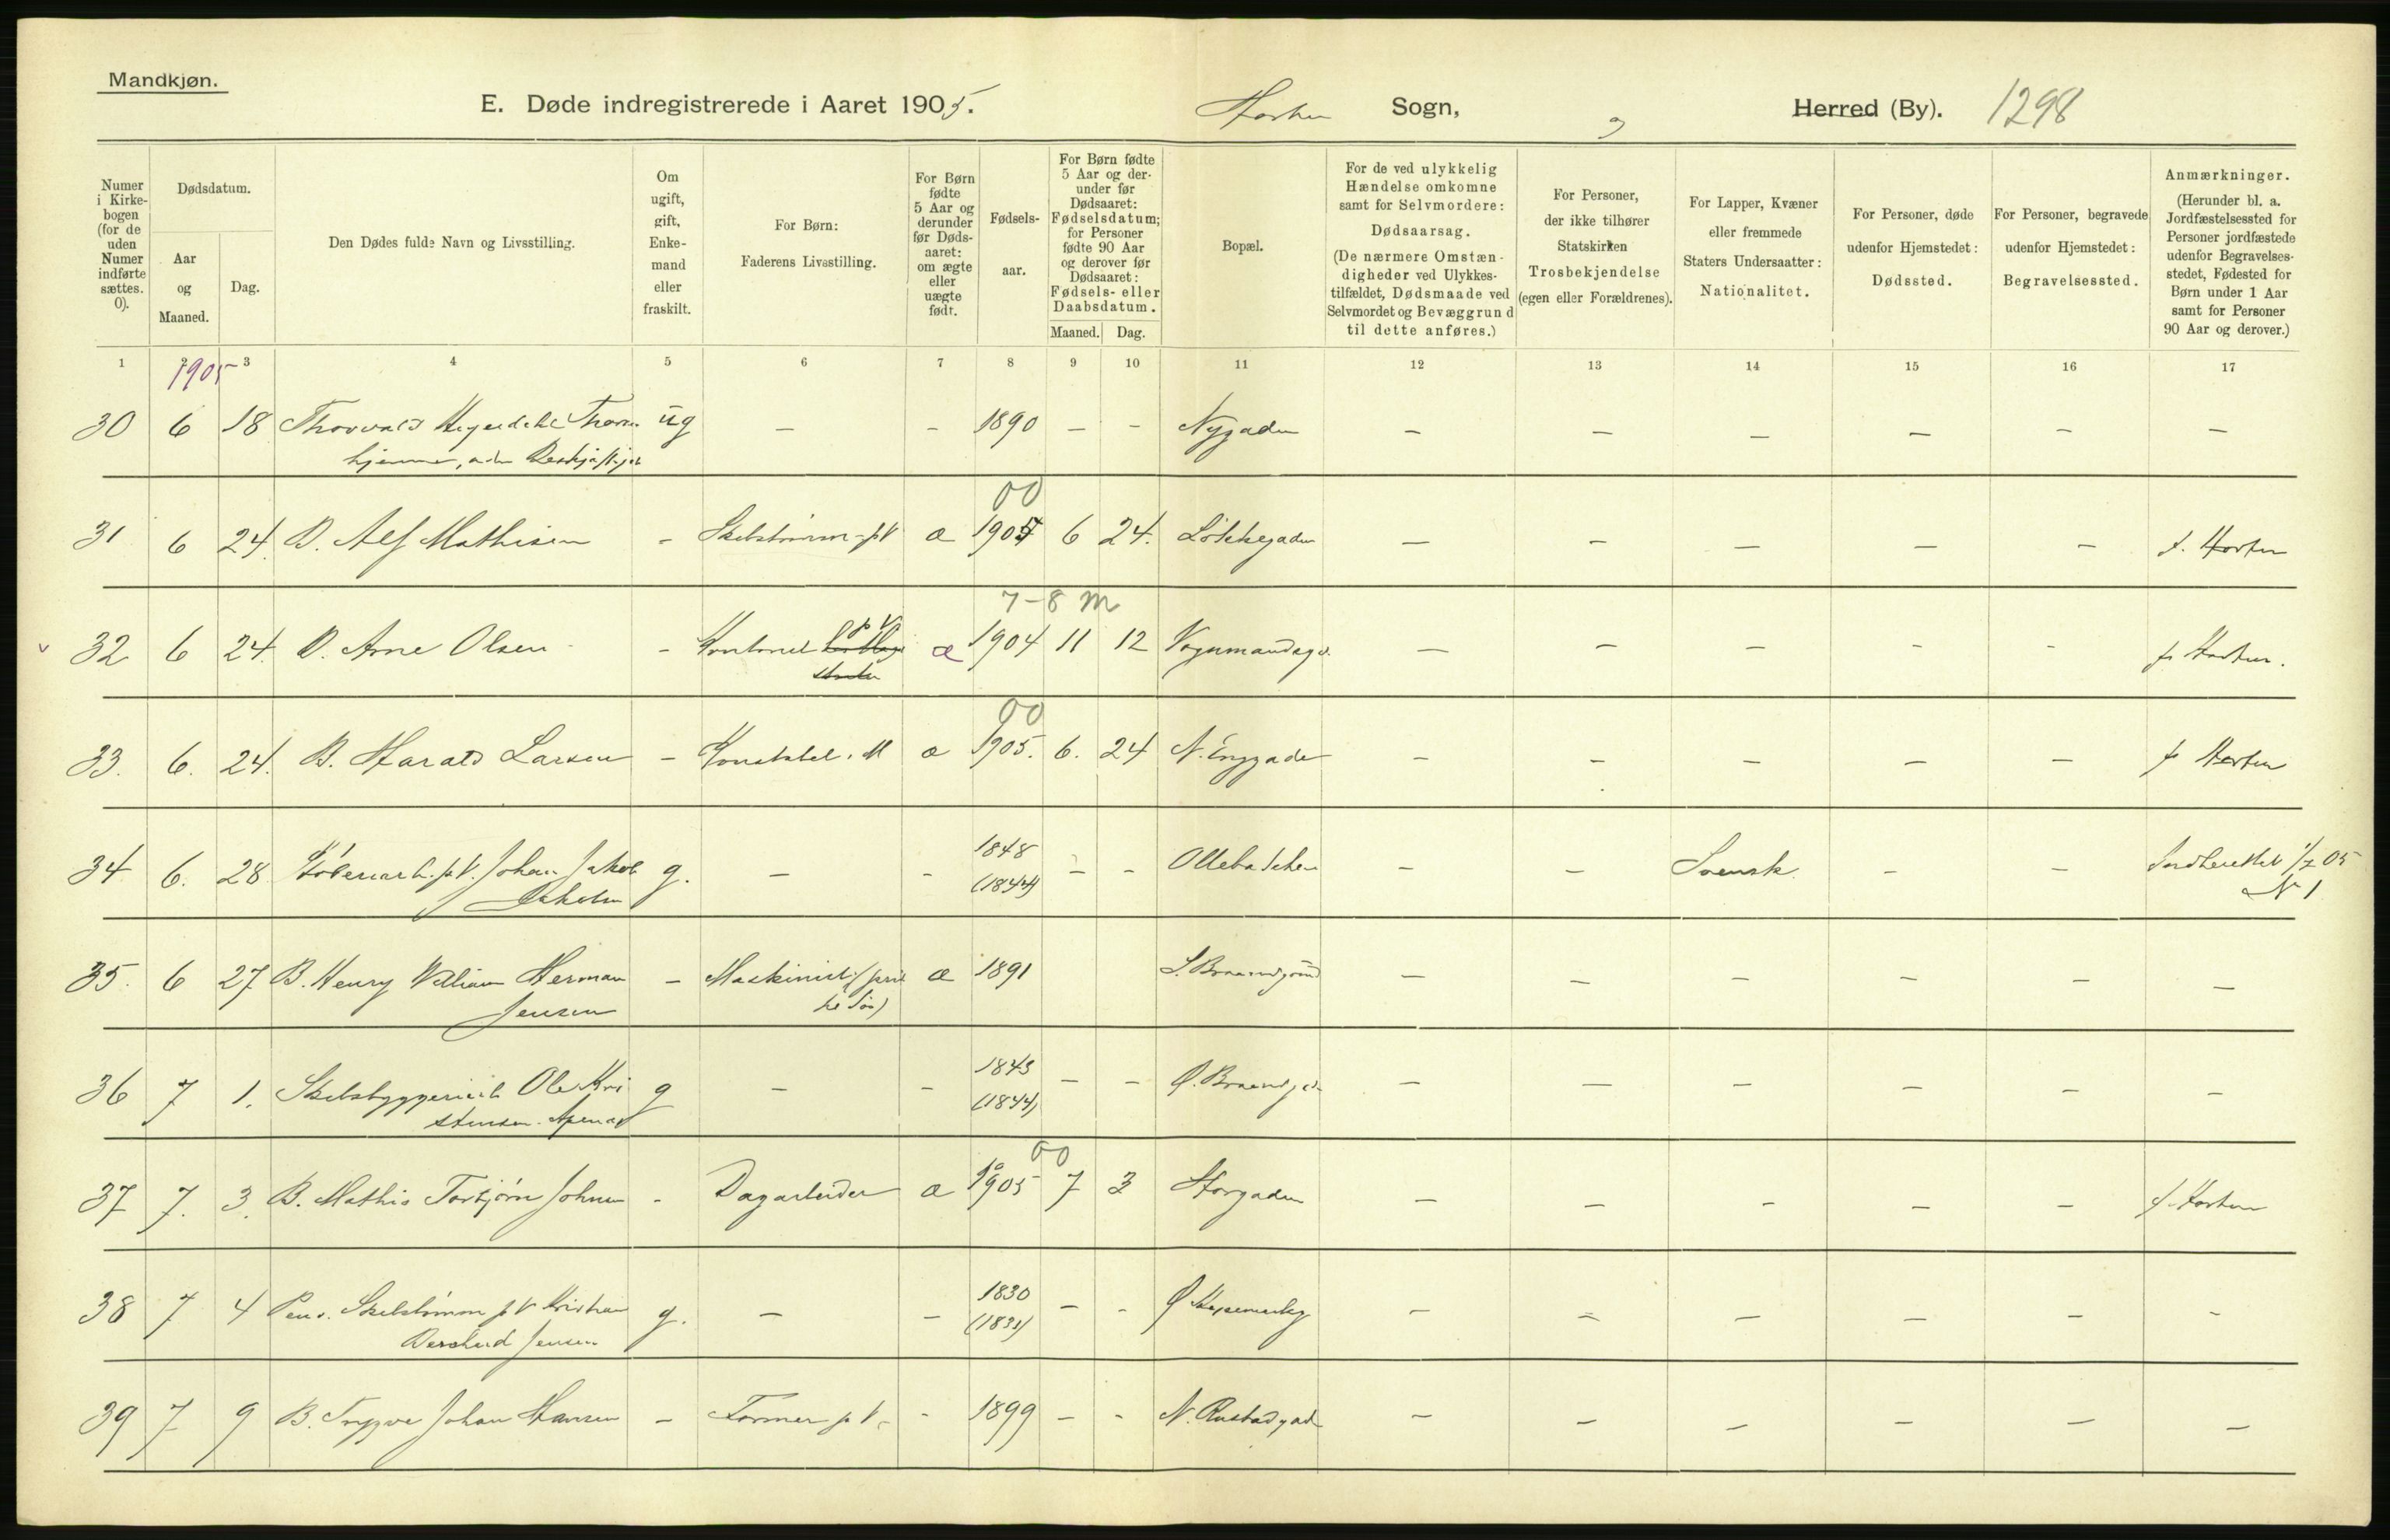 Mandkjøn.
E. Døde indregistrerede i Aaret 1905. Horten Sogn, Herred (By). 1298
Numer i Kirkebogen (for de uden Numer indførte sættes. 0).
Dødsdatum.
Aar og Maaned.
Dag.
Den Dødes fulde Navn og Livsstilling.
Om ugift, gift, Enkemand eller fraskilt.
For Børn: Faderens Livsstilling.
For Børn fødte 5 Aar og derunder før Dødsaaret: om ægte eller uægte født.
Fødselsaar.
For Børn fødte 5 Aar og derunder før Dødsaaret: Fødselsdatum; for Personer fødte 90 Aar og derover før Dødsaaret: Fødsels- eller Daabsdatum.
Maaned. Dag.
Bopæl.
For de ved ulykkelig Hændelse omkomne samt for Selvmordere: Dødsaarsag. (De nærmere Omstændigheder ved Ulykkestilfældet, Dødsmaade ved Selvmordet og Bevæggrund til dette anføres.)
For Personer, der ikke tilhører Statskirken Trosbekjendelse (egen eller Forældrenes).
For Lapper, Kvæner eller fremmede Staters Undersaatter: Nationalitet.
For Personer, døde udenfor Hjemstedet: Dødssted.
For Personer, begravede udenfor Hjemstedet: Begravelsessted.
Anmærkninger. (Herunder bl. a. Jordfæstelsessted for Personer jordfæstede udenfor Begravelsesstedet, Fødested for Børn under 1 Aar samt for Personer 90 Aar og derover.)
1 3 4 5 6 7 8 9 10 11 12 13 14 15 16 17
1905
30 6 18 Thorvald ug — - 1890 - - Nygaden — — — — — —
hjemme,
00
31 6 24. B. Alf Mathisen - Skibstømm. p V æ 1905 6 24. Løkkegaden — — — — — f. Horten
7-8 m
32 6 24. B. Arne Olsen - p V æ 1904 11 12 — — — - - f. Horten.
00
33. 6. 24. B. Harald Larsen - æ 1905. 6. 24 N. Enggade — — — — — f. Horten
34 6. 28 p V. Johan Jakob g. — - 1848 (1844) - - Ollebakken — — Svensk. — — 1/7 05
N 1
35. 6 27 B. Henry William Herman - Maskinist æ 1891 — — — — — —
Jensen
36 7 1. Ole Kri g — - 1843 (1844) - - — — — — — —
stensen
00
37 7. 3. B. Mathis Torbjørn Johnsen - Dagarbeider æ 1905 7 3 Storgaden — — - — - f. Horten
38 7 4 Pens. Skibstømm p V Kristian g. — - 1830 - - — — — — — -
Jensen
39 7 9 B. Trygve Johan Hansen - Former p V. - 1899 - - N. Rustadgad — — — — — —